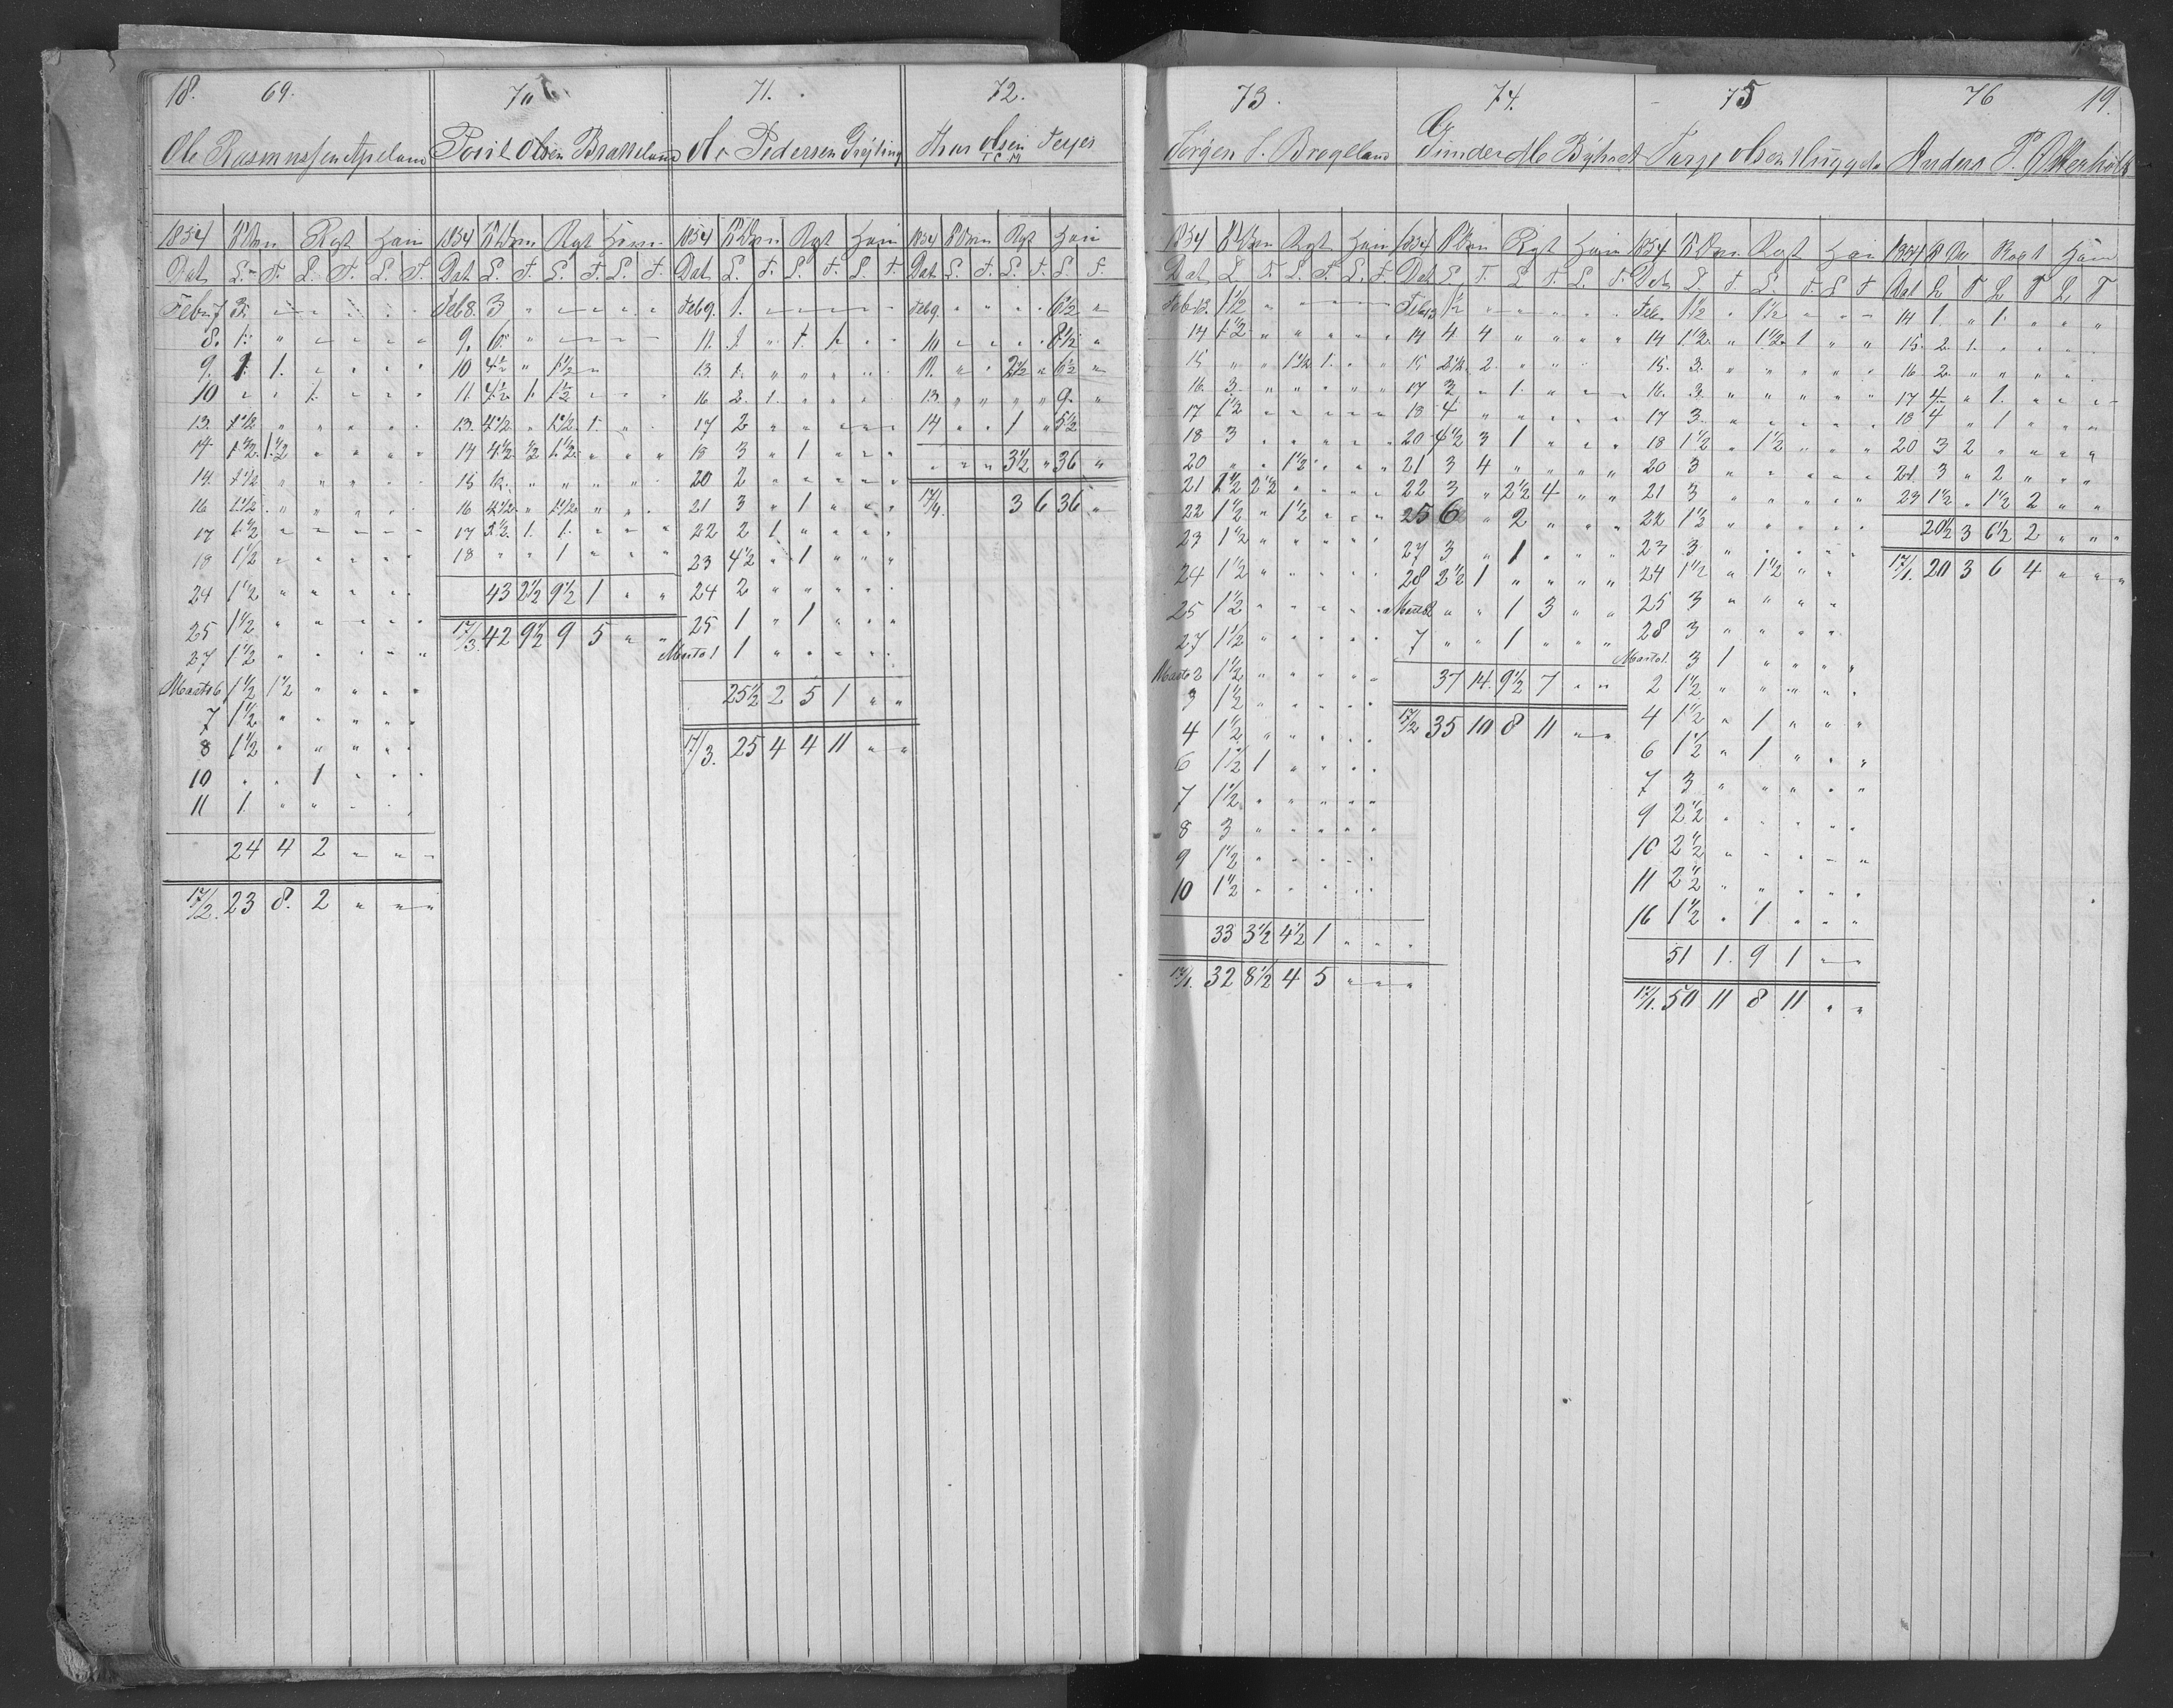 18. 69.
Ole Rasmussen Apeland
1854 Rgt Ham
Dat L. T. L. T. L. T.
Febr 7 3. " " " " "
8. 1. " " " " "
9. 1 1. " " " "
10 " " 1. " " "
13. 1 1/2 " " " " "
14 1 1/2 1 1/2 " " " "
15. 1 1/2 " " " " "
16 1 1/2 " " " " "
17 1 1/2 " " " " "
18 1 1/2 " " " " "
24 1 1/2 " " " " "
25 1 1/2 " " " " "
27 1 1/2 " " " " "
Marts 6 1 1/2 1 1/2 " " " "
7 1 1/2 " " " " "
8 1 1/2 " " " " "
10 " " 1 " " "
11 1. " " " " "
24 4 2 " " "
17/2. 23 8. 2 " " "
70
Olsen
1854 Rgt Ham
Dat L. T. L. T. L. T.
Feb 8. 3 " " " " "
9. 6 " " " " "
10 4 1/2 " 1 1/2 " " "
11. 4 1/2 1. 1 1/2 " " "
13. 4 1/2 " 1 1/2 1. " "
14 4 1/2 1/2 1 1/2 " " "
15 " " " " "
16 4 1/2 " 1 1/2 " " "
17 3 1/2 1. 1. " " "
18 " " 1 " " "
43 2 1/2 9 1/2 1 " "
17/3. 42 9 1/2 9 5 " "
71.
Pedersen
1854 Rgt Ham
Dat L. T. L. T. L. T.
Feb 9. 1. " " " " "
11. 1 " 1. 1. " "
13 1. " " " " "
16 2. 1. " " " "
17 2 " " " " "
18 3 " 1 " " "
20 2 " " " " "
21 3 " 1 " " "
22 2 1 " " " "
23 4 1/2 " 1 " " "
24 2 " " " " "
25 1 " 1 " " "
Marts 1 1 " " " " "
25 1/2 2 5 1 " "
17/3. 25 4 4 11 " "
72.
Olsen
1854 Rgt Ham
Dat L. T. L. T. L. T.
Feb 9. " " " " 6 1/2 "
10 " " " " 8 1/2 "
11. " " 2 1/2 " 6 1/2 "
13 " " " " 9. "
14 " " 1 " 5 1/2
" " 3 1/2 " 36 "
17/4. 3 6 36 "
73.
Jørgen
1854 Rgt Ham
Dat L. T. L. T. L. T.
Feb 13. 1 1/2 " " " " "
14 1 1/2 " " " " "
15 " " 1 1/2 1. " "
16. 3. " " " " "
17 1 1/2 " " " " "
18 3 " " " " "
20 " " 1 1/2 " " "
21 1 1/2 2 1/2 " " " "
22 1 1/2 " 1 1/2 " " "
23 1 1/2 " " " " "
24 1 1/2 " " " " "
25 1 1/2 " " " " "
27 1 1/2 " " " " "
Marts 2 1 1/2 " " " " "
3 1 1/2 " " " " "
4 1 1/2 " " " " "
6 1 1/2 1 " " " "
7 1 1/2 " " " " "
8 3 " " " " "
9 1 1/2 " " " " "
10 1 1/2 " " " " "
33 3 1/2 4 1/2 1 " "
17/1. 32 8 1/2 4 5 " "
74.
1854 Rgt Ham
Dat L. T. L. T. L. T.
Feb 13 1 1/2 " " " " "
14 4 4 " " " "
15 2 1/2 2 " " " "
17 3 " 1. " " "
18 4 " " " " "
20 4 1/2 3 1 " " "
21 3 4 " " " "
22 3 " 2 1/2 4 " "
25 6 " 2 " " "
27 3 " 1 " " "
28 2 1/2 1 " " " "
Marts 2 " " 1 3 " "
7 " " 1 " " "
37 14. 9 1/2 7 " "
17/2 35 10 8 11 " "
75
Olsen
1854 Rgt Ham
Dat L. T. L. T. L. T
Feb. 1 1/2 " 1 1/2 " " "
14 1 1/2. " 1 1/2. 1 " "
15. 3. " " " " "
16. 3. " " " " "
17 3 " " " " "
18 1 1/2 " 1 1/2 " " "
20 3 " " " " "
21 3 " " " " "
22 1 1/2 " " " " "
23 3 " " " " "
24 1 1/2 " 1 1/2 " "
25 3 " " " "
28 3 " " " "
Marts 1. 3 1 " " " "
2 1 1/2 " " " " "
4 1 1/2 " 1 " " "
6 1 1/2 " 1 " " "
7 3 " " " " "
9 2 1/2 " " " " "
10 2 1/2 " " " " "
11 2 1/2 " " " " "
16 1 1/2 " 1 " " "
51 1. 9 1 " "
17/1. 50 11 8 11 " "
76 19.
Anders P.
1854 Rogt Ham
Dat L T L T L T
14 1. " 1. " " "
15. 2. 1. " " " "
16 2. " " " " "
17 4. " 1. " " "
18 4 " 1 " " "
20 3 2 " " " "
21. 3 " 2 " " "
23 1 1/2. " 1 1/2 2 " "
20 1/2 3 6 1/2 2 " "
17/1. 20 3 6 4 " "